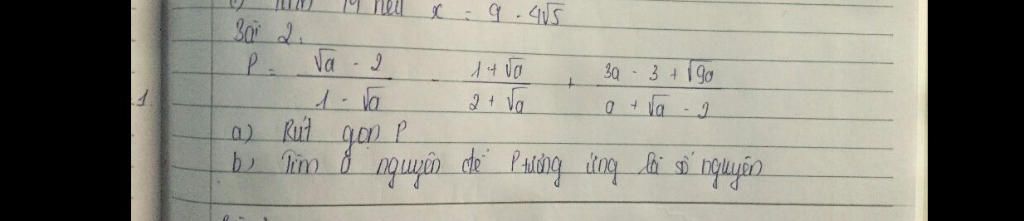 c) Tìm M nếu x = 9 - 4√5
Bài 2.
P = (√a - 2)/(1 - √a) - (1 + √a)/(2 + √a) + (3a - 3 + √9a)/(a + √a - 2)
1
a) Rút gọn P
b) Tìm a nguyên để P tương ứng là số nguyên